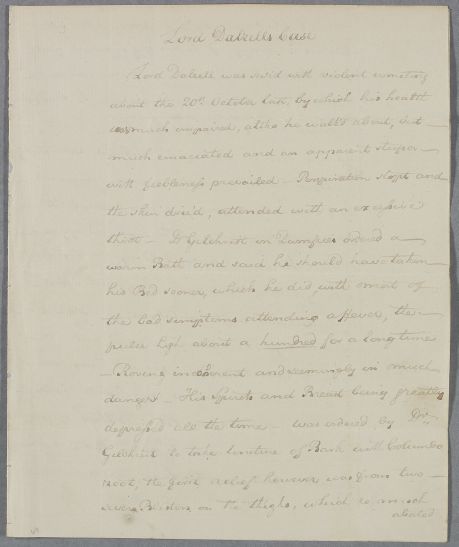 Lord Dalzells Case
Lord Dalzell was seiz'd with violent vomiting
about the 20th October last, by which his health
was much impaired, altho he walk'd about, but
much emaciated and an apparent stupor
with feebleness prevailed – Perspiration stopt and
the skin dried, attended with an excessive
thirst – Dr Gilchrist in Dumfries ordered a
warm Bath and said he should have taken
his Bed sooner, which he did, with most of
the bad symptoms attending a Fever, the
pulse kept about a hundred for a long time
– Roving incoherent and seemingly in much
danger – His Spirits and Breast being greatly
depressed all the time – was ordered by Dr
Gilchrist to take tincture of Bark with Columbo
root, the first relief however was from two
severe Blisters on the thighs, which so much
abated